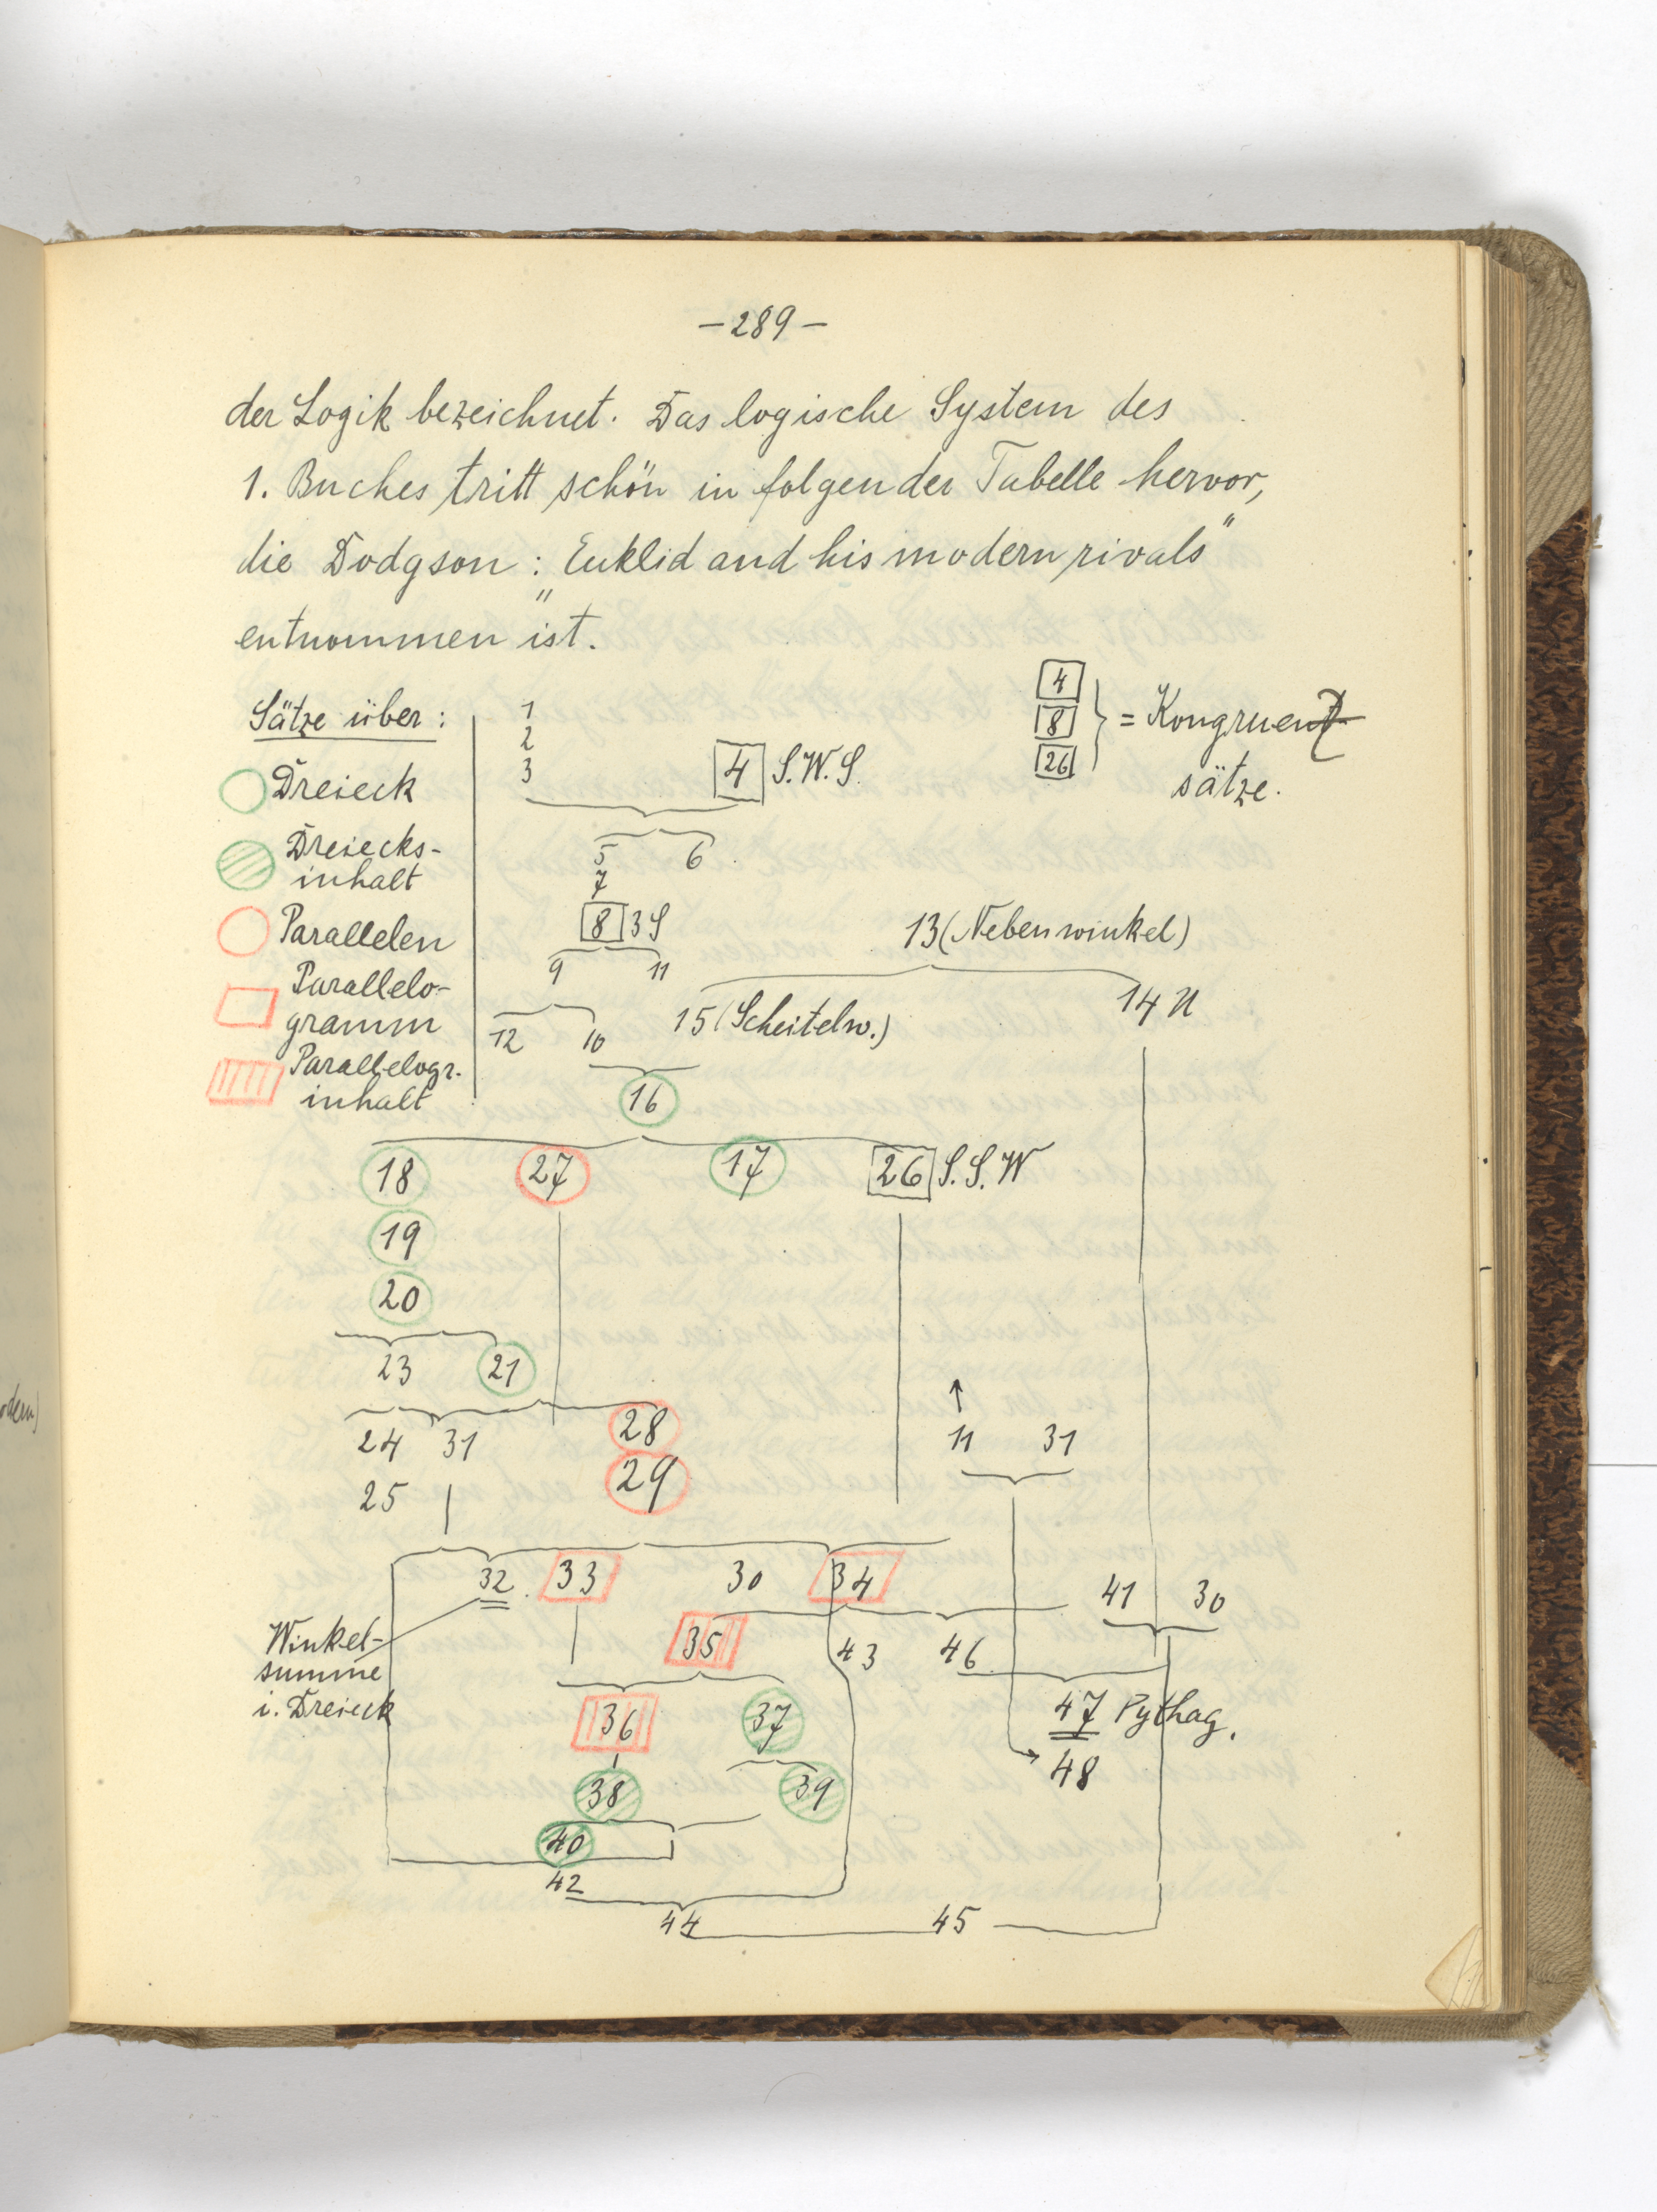 -289-
der Logik bezeichnet. Das logische System des
1. Buches tritt schön in folgender Tabelle hervor,
die Dodgson: „Euklid and his modern rivals"
entnommen ist.
Sätze über:
Dreieck
Dreiecks-
inhalt
Parallelen
Parallelo-
gramm
Parallelogr.
inhalt
1
2
3
4 S.W.S.
4
8
26
} = Kongruenz
sätze.
5 6
7
8 3S
13 (Nebenwinkel)
9 11
15 (Scheitelw.) 14 U
12 10
16
18 27 17 26 S.S.W
19
20
23 21
24 31 28
11 31
25 29
32 33 30 34
41 30
Winkel-
summe
i. Dreieck
35 43 46
36 37
47 Pythag.
48
38 39
40
42
44 45